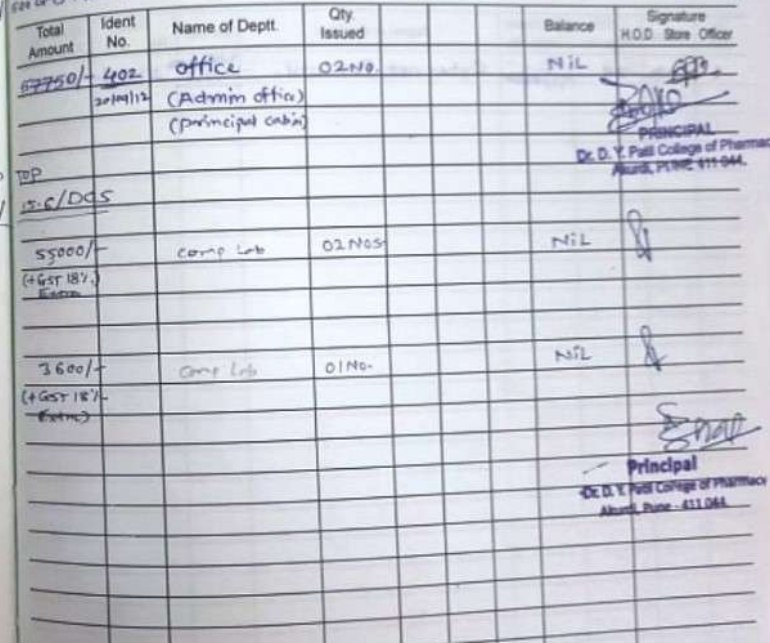 Total Amount Ident No. Name of Deptt. Qty. Issued Balance Signature H.O.D Store Officer
57750/- 402 office 02 No. NiL
(Admin office)
(principal cabin)
PRINCIPAL
Dr. D. Y. Patil College of Pharmacy
Akurdi, PUNE 411 044.
TOP
55000/- comp Lab 02 Nos NiL
(+GST 18%
Extra
3600/- Comp Lab 01 No- NiL
(+GST 18%
Extra)
Principal
Dr. D. Y. Patil College of Pharmacy
Akurdi, Pune - 411 044.